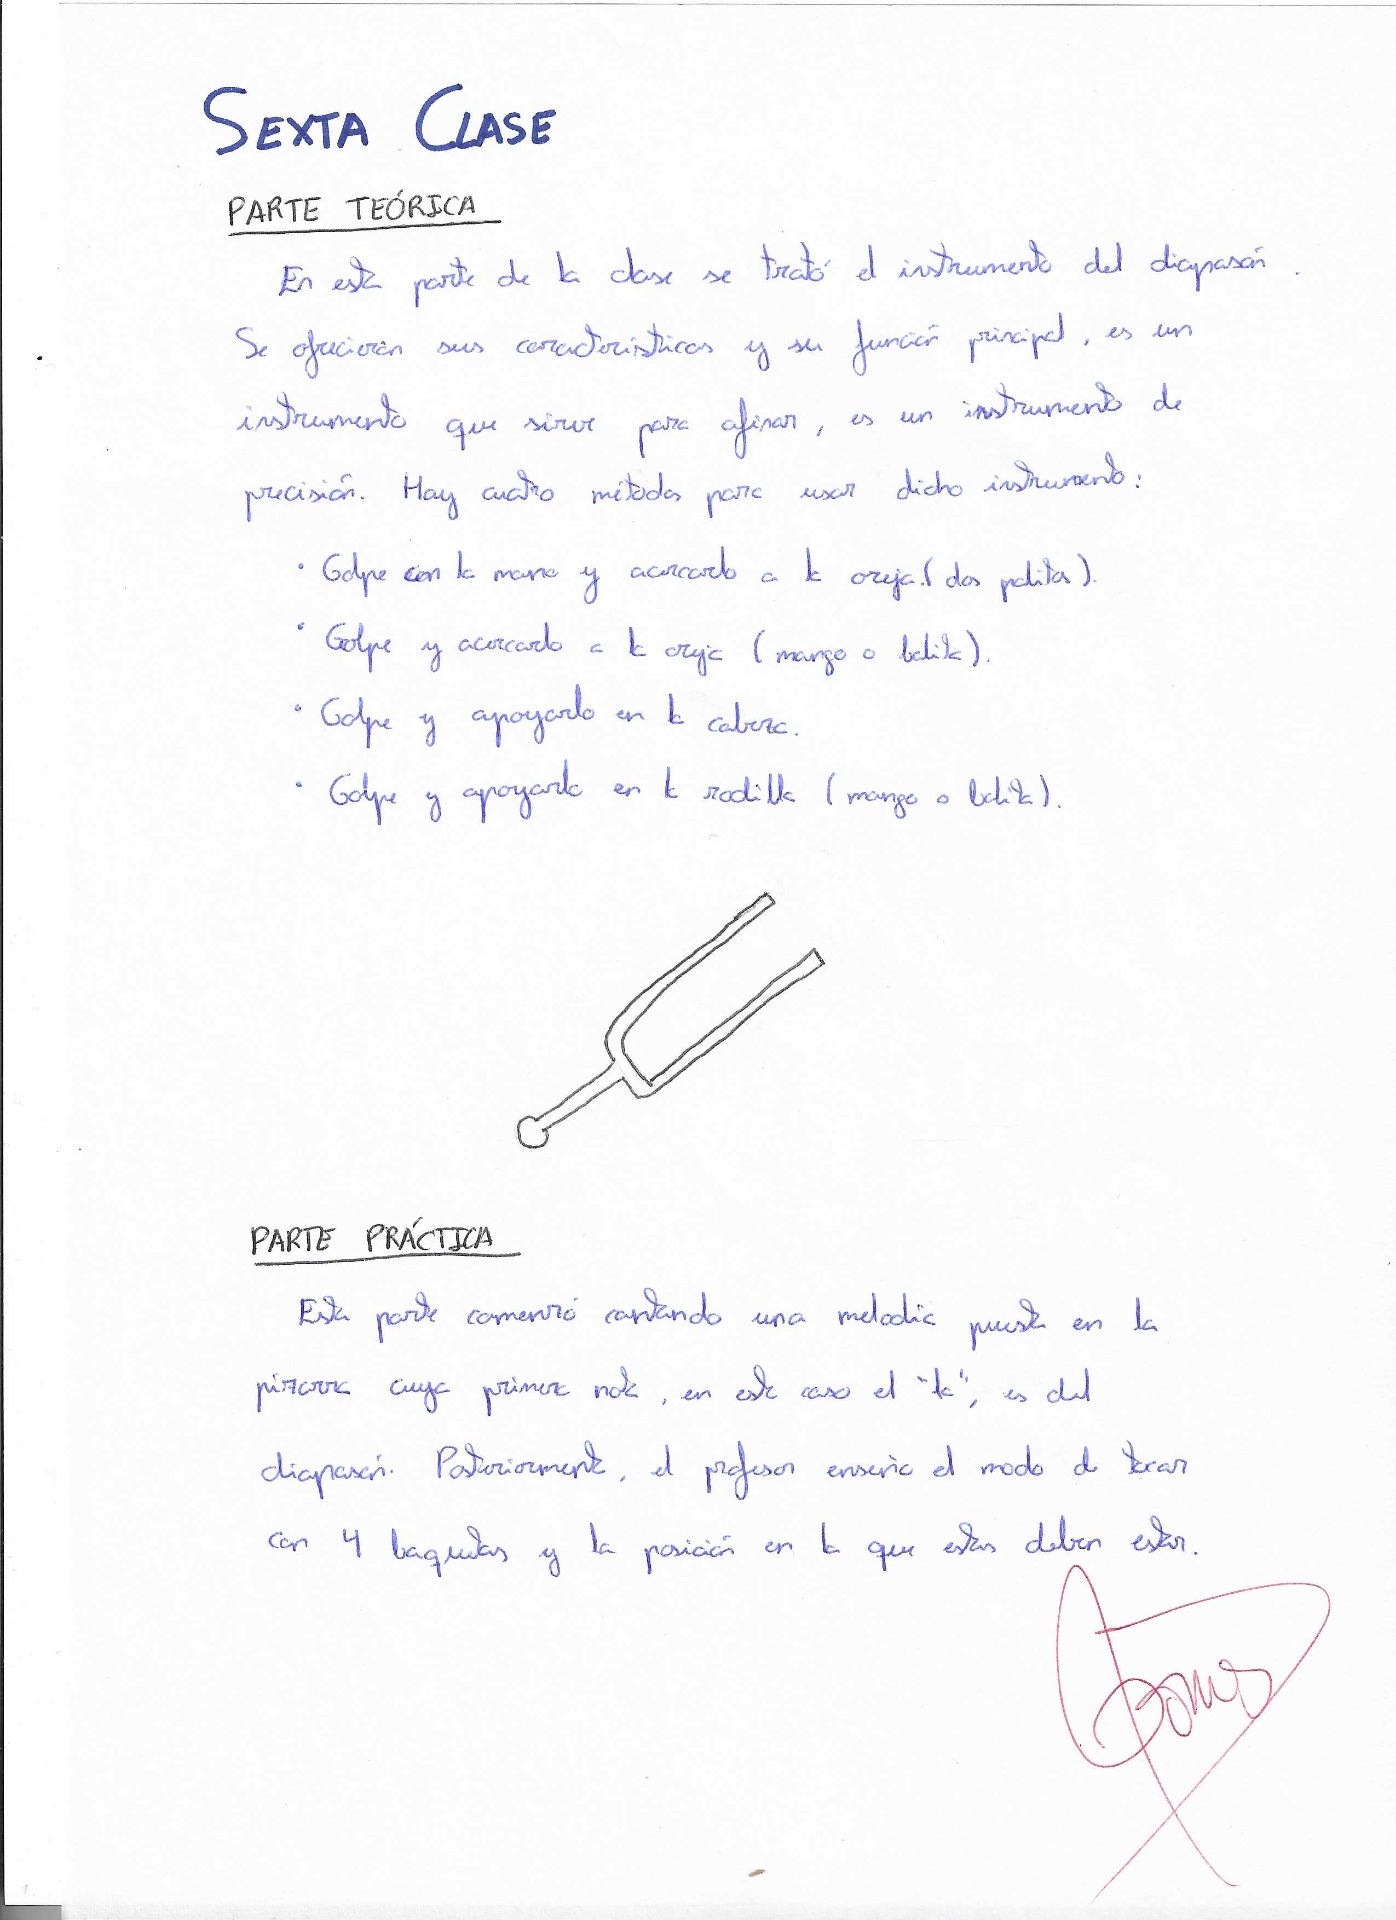 SEXTA CLASE
PARTE TEÓRICA
En esta parte de la clase se trató el instrumento del diapasón.
Se ofrecieron sus características y su función principal, es un
instrumento que sirve para afinar, es un instrumento de
precisión. Hay cuatro métodos para usar dicho instrumento:
· Golpe con la mano y acercarlo a la oreja (dos palitos).
· Golpe y acercarlo a la oreja (mango o bolita).
· Golpe y apoyarlo en la cabeza.
· Golpe y apoyarlo en la rodilla (mango o bolita).
PARTE PRÁCTICA
Esta parte comenzó cantando una melodía puesta en la
pizarra cuya primera nota, en este caso el "la", es del
diapasón. Posteriormente, el profesor enseño el modo de tocar
con 4 baquetas y la posición en la que estas deben estar.